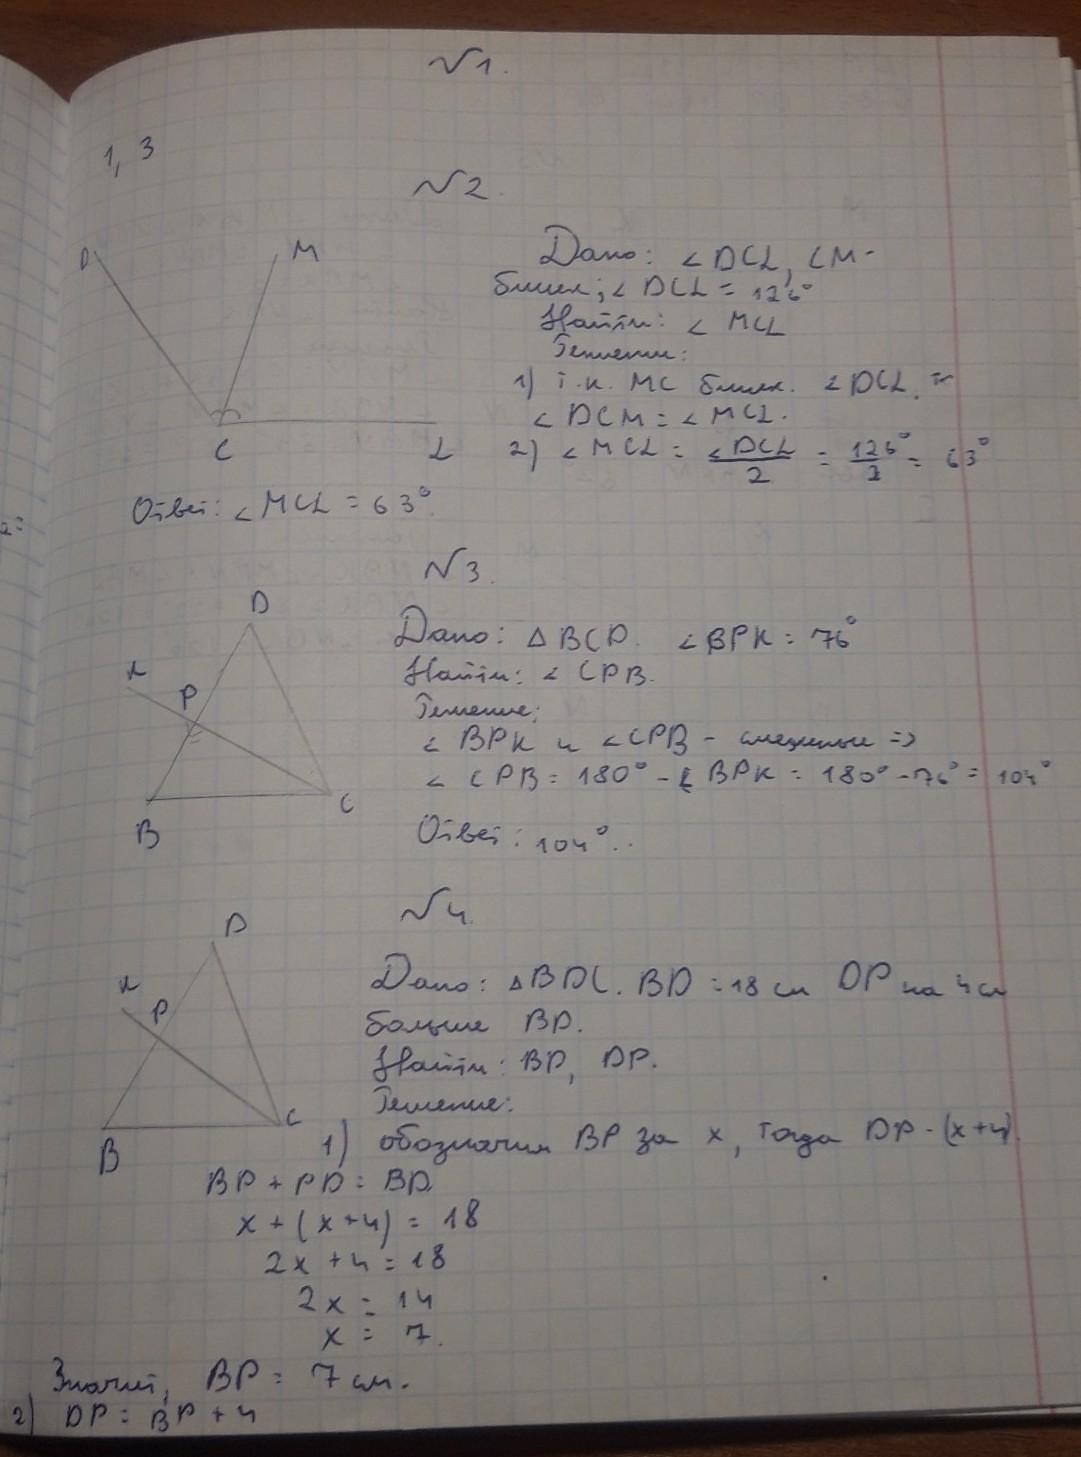 №1.
1, 3
№2.
D
M
C
L
Дано: ∠DCL, CM -
бисек; ∠DCL = 126°
Найти: ∠MCL
Решение:
1) т.к. MC бисек. ∠DCL, то
∠DCM = ∠MCL.
2) ∠MCL = ∠DCL/2 = 126°/2 = 63°
Ответ: ∠MCL = 63°.
№3.
D
K
P
B
C
Дано: △BCD. ∠BPK = 76°
Найти: ∠CPB.
Решение:
∠BPK и ∠CPB - смежные =>
∠CPB = 180° - ∠BPK = 180° - 76° = 104°
Ответ: 104°.
№4.
D
K
P
B
C
Дано: △BDC. BD = 18 см DP на 4 см
больше BP.
Найти: BP, DP.
Решение:
1) обозначим BP за x, тогда DP - (x+4)
BP + PD = BD
x + (x+4) = 18
2x + 4 = 18
2x = 14
x = 7.
Значит, BP = 7 см.
2) DP = BP + 4